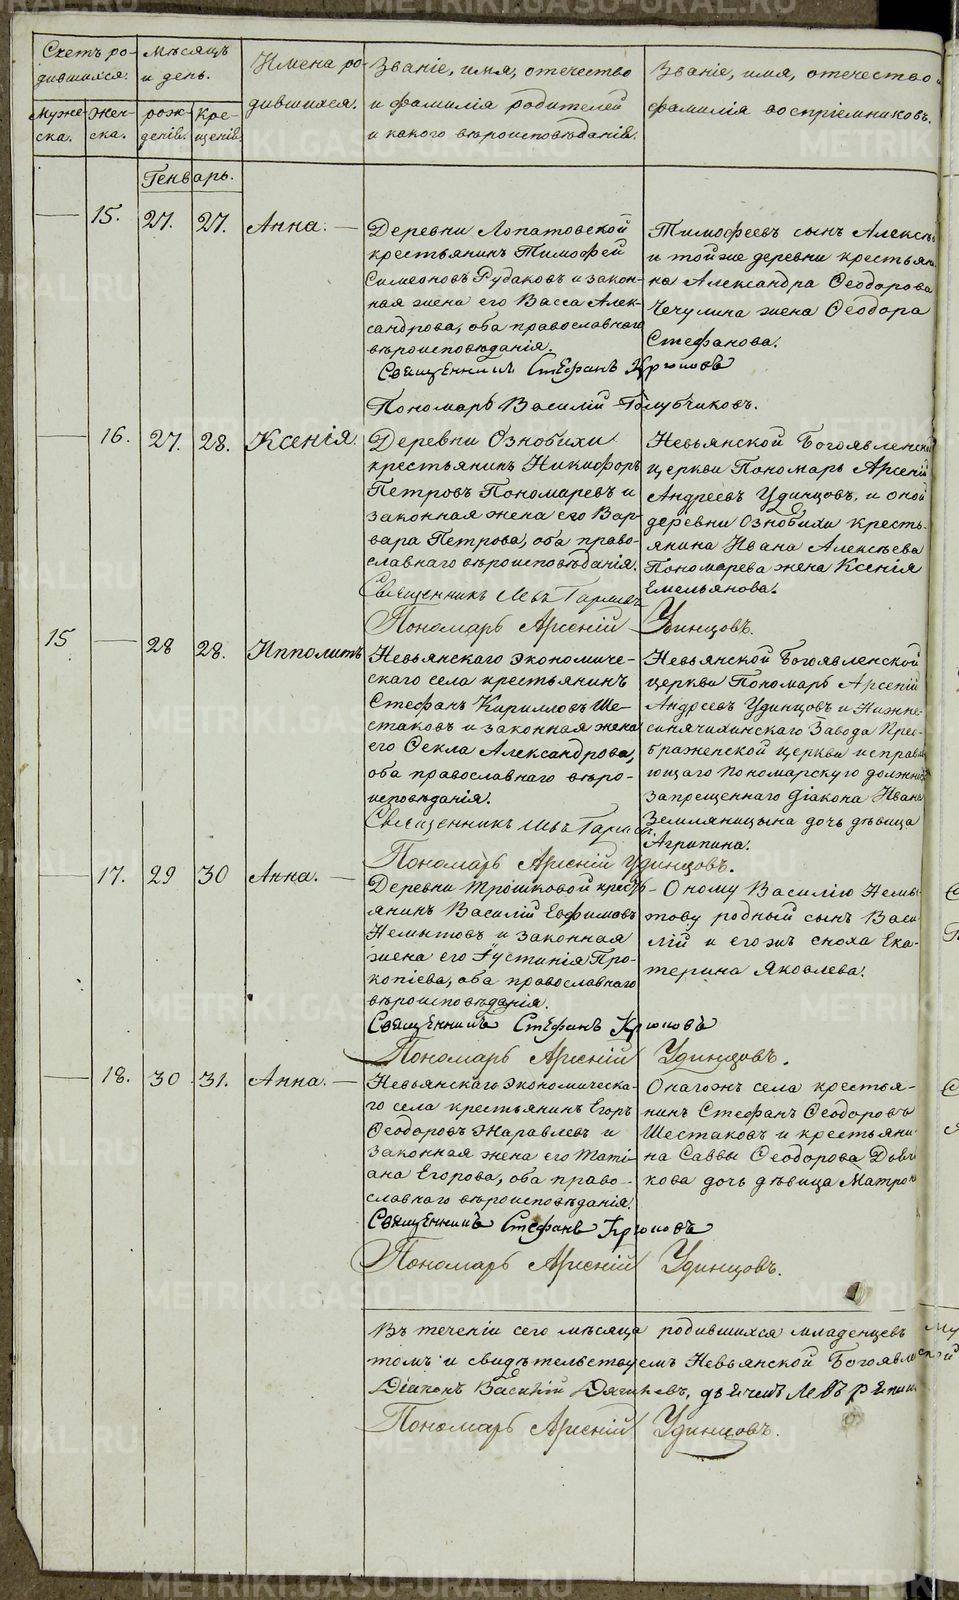 Счетъ ро-
дившихся.
Мѣсяцъ
и день.
Имена ро-
дившихся.
Званіе, имя, отечество
и фамилія родителей
и какого вѣроисповѣданія.
Званіе, имя, отечество
фамилія воспріемниковъ.
Муже-
ска.
Жен-
ска.
рож-
денія.
Кре-
щенія.
Генварь.
15. 27. 27. Анна.
Деревни Лопатовской
крестьянинъ Тимофей
Симеоновъ Рудаковъ и закон-
ная жена его Васса Алек-
сандрова, оба православнаго
вѣроисповѣданія.
Священникъ Стефанъ Крюковъ
Пономарь Василій Голубчиковъ.
Тимофеевъ сынъ Алексѣй
и тойже деревни крестьян
на Александра Ѳеодорова
Чечулина жена Ѳеодора
Стефанова.
16. 27. 28. Ксенія.
Деревни Ознобихи
крестьянинъ Никифоръ
Петровъ Пономаревъ и
законная жена его Вар-
вара Петрова, оба право-
славнаго вѣроисповѣданія.
Священникъ Левъ
Пономарь Арсеній Удинцовъ.
Невьянской Богоявленской
церкви Пономарь Арсеній
Андреевъ Удинцовъ, и оной
деревни Ознобихи кресть-
янина Ивана Алексѣева
Пономарева жена Ксенія
Емельянова.
15 28 28. Ипполитъ
Невьянскаго экономиче-
скаго села крестьянинъ
Стефанъ Кирилловъ Ше-
стаковъ и законная жена
его Ѳекла Александрова,
оба православнаго вѣро-
исповѣданія.
Священникъ Левъ
Пономарь Арсеній Удинцовъ.
Невьянской Богоявленской
церкви Пономарь Арсеній
Андреевъ Удинцовъ и Нижне-
синячихинскаго Завода Прео-
браженской церкви исправл
ющаго пономарскую должнос
запрещеннаго діакона Ивана
Земляницына дочь дѣвица
Агрипина.
17. 29 30 Анна.
Деревни Трошковой кресть-
янинъ Василій Евфимовъ
Немытовъ и законная
жена его Іустинія Про-
копіева, оба православнаго
вѣроисповѣданія.
Священникъ Стефанъ Крюковъ
Пономарь Арсеній Удинцовъ.
Оному Василію Немы-
тову родный сынъ Васи-
лій и егожъ сноха Ека-
терина Яковлева.
18. 30 31. Анна.
Невьянскаго экономическа-
го села крестьянинъ Егоръ
Ѳеодоровъ Жаравлевъ и
законная жена его Тати-
ана Егорова, оба право-
славнаго вѣроисповѣданія.
Священникъ Стефанъ Крюковъ
Пономарь Арсеній Удинцовъ.
Онагожъ села крестья-
нинъ Стефанъ Ѳеодоровъ
Шестаковъ и крестьяни-
на Саввы Ѳеодорова
кова дочь дѣвица Матрона
Въ теченіи сего мѣсяца родившихся младенцевъ
томъ и свидѣтельствуемъ Невьянской Богоявленской
Діаконъ Василій
Пономарь Арсеній Удинцовъ.
METRIKI.GASO-URAL.RU